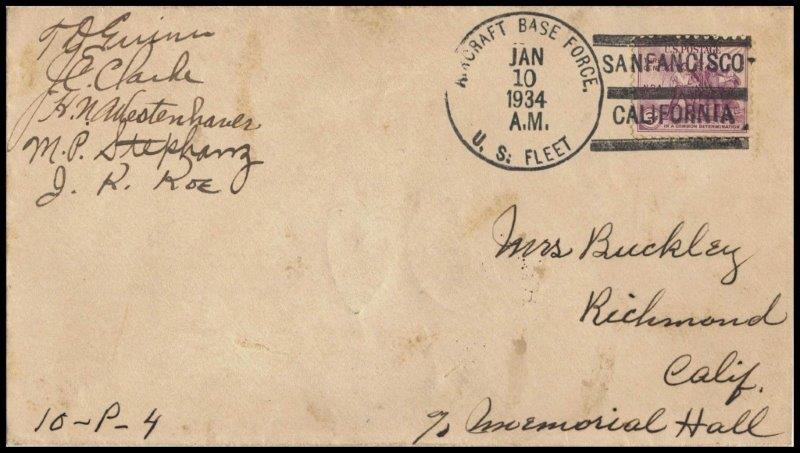 J.E. Clarke
H.N. Westenhaver
M.P. Stephany
J. R. Roe
AIRCRAFT BASE FORCE,
JAN
10
1934
A.M.
U.S. FLEET
SANFANCISCO
CALIFORNIA
U.S. POSTAGE
IN A COMMON DETERMINATION
Mrs Buckley
Richmond
Calif.
% Memorial Hall
10-P-4